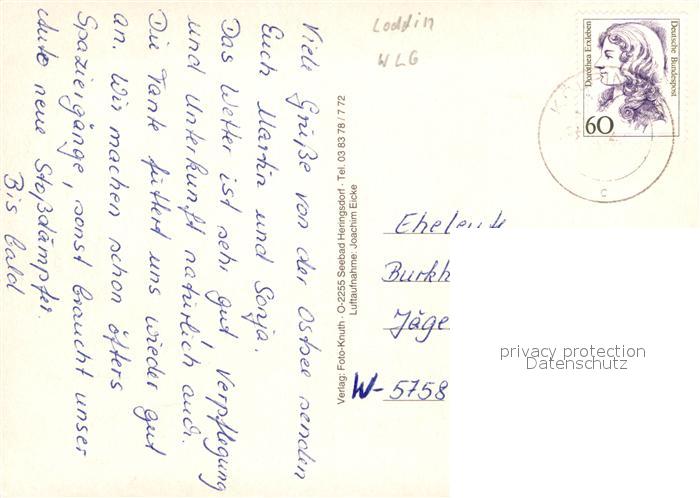 Viele Grüße von der Ostsee senden
Euch Martin und Sonja.
Das Wetter ist sehr gut Verpflegung
und Unterkunft natürlich auch.
Die Tante füttert uns wieder gut
an. Wir machen schon öfters
Spaziergänge, sonst braucht unser
Auto neue Stoßdämpfer.
Bis bald
Loddin
WLG
Verlag: Foto-Knuth · O-2255 Seebad Heringsdorf · Tel. 03 83 78 / 7 72
Luftaufnahme: Joachim Eicke
Dorothea Erxleben
Deutsche Bundespost
60
c
Eheleute
Burkh
Jäge
W-5758
privacy protection
Datenschutz